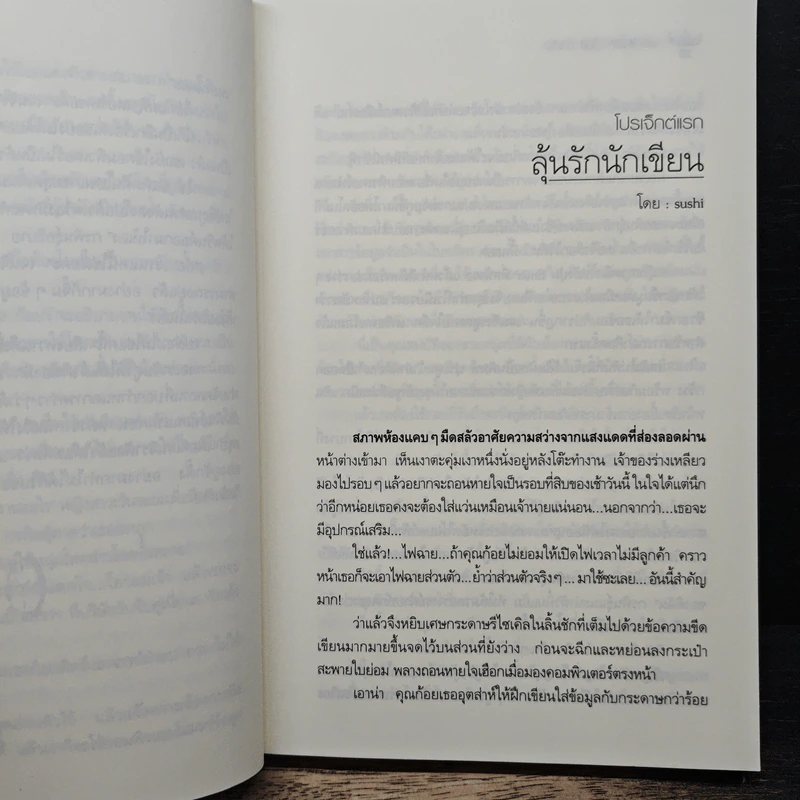 โปรเจ็กต์แรก
ลุ้นรักนักเขียน
โดย : sushi
สภาพห้องแคบ ๆ มืดสลัวอาศัยความสว่างจากแสงแดดที่ส่องลอดผ่าน
หน้าต่างเข้ามา เห็นเงาตะคุ่มเงาหนึ่งนั่งอยู่หลังโต๊ะทำงาน เจ้าของร่างเหลียว
มองไปรอบ ๆ แล้วอยากจะถอนหายใจเป็นรอบที่สิบของเช้าวันนี้ ในใจได้แต่นึก
ว่าอีกหน่อยเธอคงจะต้องใส่แว่นเหมือนเจ้านายแน่นอน...นอกจากว่า...เธอจะ
มีอุปกรณ์เสริม...
ใช่แล้ว!...ไฟฉาย...ถ้าคุณก้อยไม่ยอมให้เปิดไฟเวลาไม่มีลูกค้า คราว
หน้าเธอก็จะเอาไฟฉายส่วนตัว...ย้ำว่าส่วนตัวจริง ๆ ... มาใช้ซะเลย... อันนี้สำคัญ
มาก!
ว่าแล้วจึงหยิบเศษกระดาษรีไซเคิลในลิ้นชักที่เต็มไปด้วยข้อความขีด
เขียนมากมายขึ้นจดไว้บนส่วนที่ยังว่าง ก่อนจะฉีกและหย่อนลงกระเป๋า
สะพายใบย่อม พลางถอนหายใจเฮือกเมื่อมองคอมพิวเตอร์ตรงหน้า
เอาน่า คุณก้อยเธออุตส่าห์ให้ฝึกเขียนใส่ข้อมูลกับกระดาษกว่าร้อย